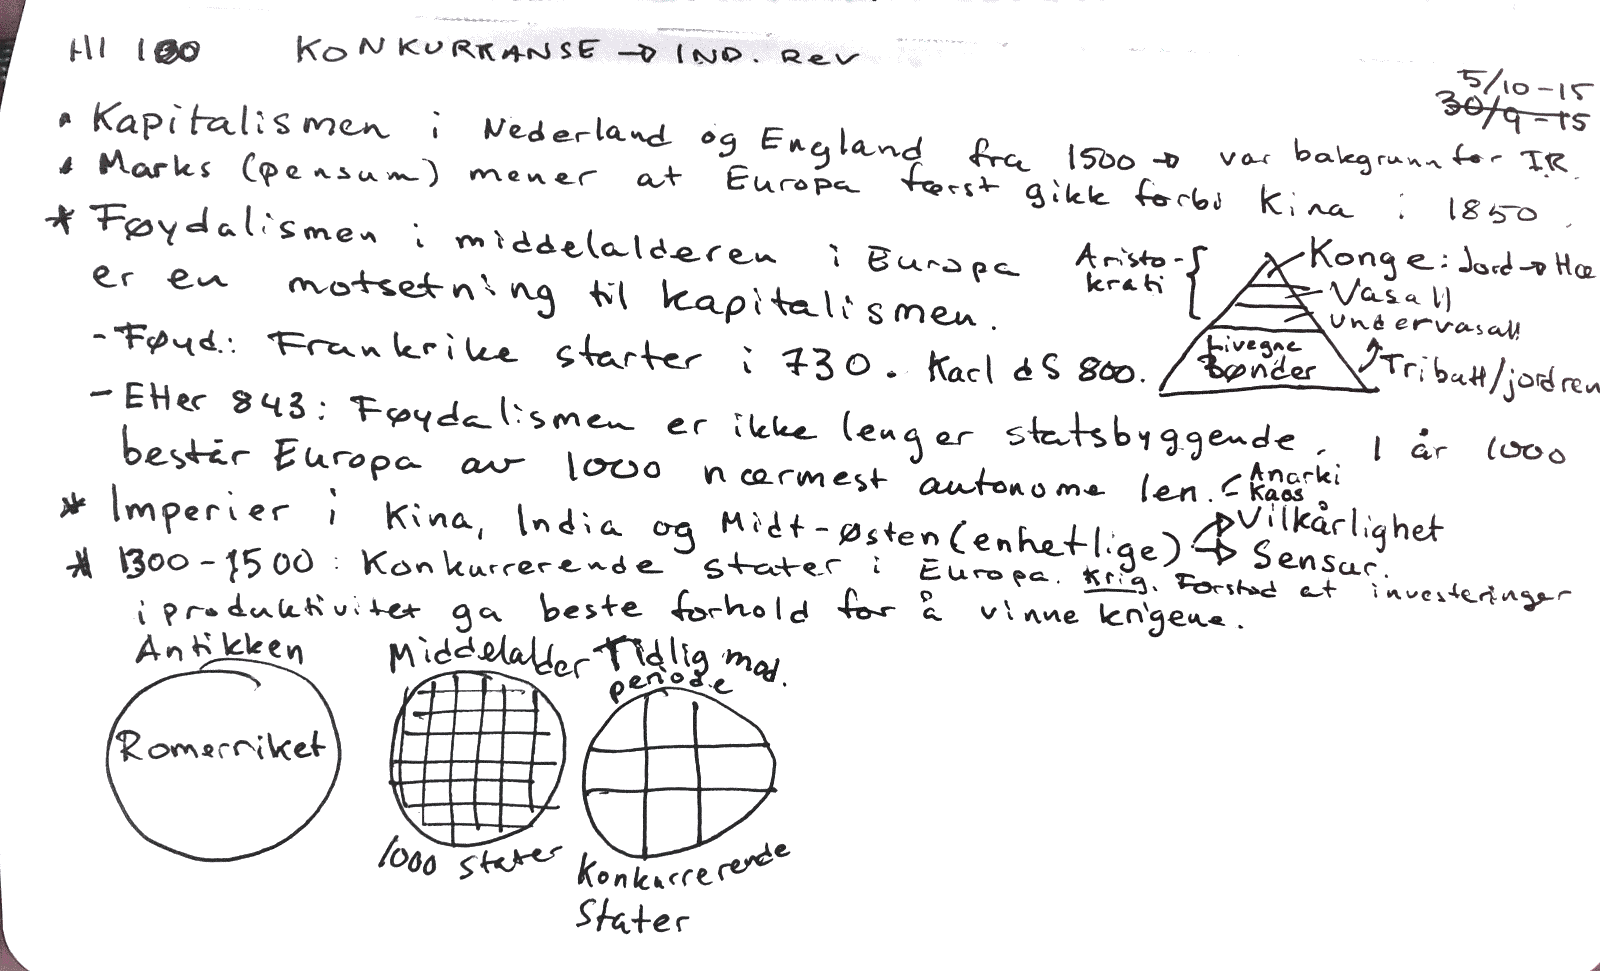 HI 100 KONKURRANSE → IND. REV
5/10-15
30/9-15
• Kapitalismen i Nederland og England fra 1500 → var bakgrunn for IR.
• Marks (pensum) mener at Europa først gikk forbi Kina i 1850.
* Føydalismen i middelalderen i Europa
er en motsetning til kapitalismen.
- Føyd.: Frankrike starter i 730. Karl dS 800.
Aristo-
krati
Konge: Jord → Hæ
Vasall
Undervasall
Livegne
Bønder
Tributt/jordren
- Etter 843: Føydalismen er ikke lenger statsbyggende. I år 1000
består Europa av 1000 nærmest autonome len.
- Anarki
- Kaos
* Imperier i Kina, India og Midt-Østen (enhetlige)
→ Vilkårlighet
→ Sensur.
* 1300-1500: Konkurrerende stater i Europa. Krig. Forstod at investeringer
i produktivitet ga beste forhold for å vinne krigene.
Antikken
Romerriket
Middelalder
1000 stater
Tidlig mod.
periode
Konkurrerende
Stater